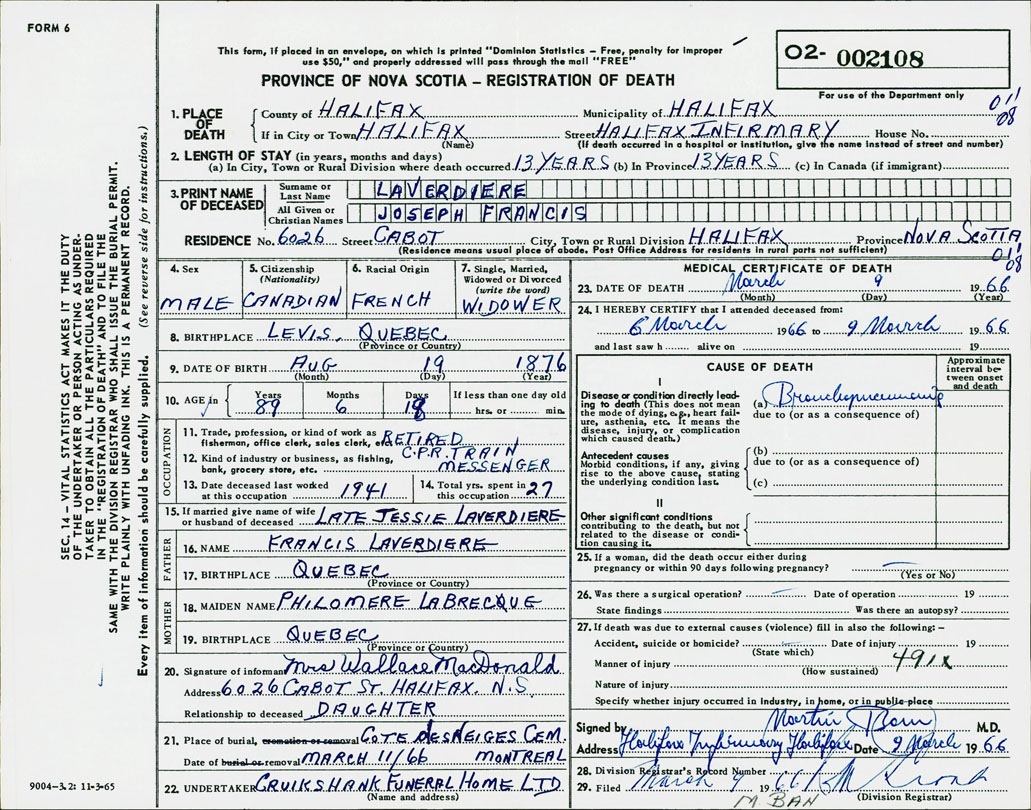 FORM 6
This form, if placed in an envelope, on which is printed "Dominion Statistics – Free, penalty for improper
use $50," and properly addressed will pass through the mail "FREE"
PROVINCE OF NOVA SCOTIA – REGISTRATION OF DEATH
02- 002108
For use of the Department only
011
08
1. PLACE OF DEATH
County of HALIFAX Municipality of HALIFAX
If in City or Town HALIFAX (Name) Street HALIFAX INFIRMARY House No.
(If death occurred in a hospital or institution, give the name instead of street and number)
2. LENGTH OF STAY (in years, months and days)
(a) In City, Town or Rural Division where death occurred 13 YEARS (b) In Province 13 YEARS (c) In Canada (if immigrant)
3. PRINT NAME OF DECEASED
Surname or Last Name LAVERDIERE
All Given or Christian Names JOSEPH FRANCIS
RESIDENCE No. 6026 Street CABOT City, Town or Rural Division HALIFAX Province NOVA SCOTIA
(Residence means usual place of abode. Post Office Address for residents in rural parts not sufficient)
011
08
4. Sex
MALE
5. Citizenship
(Nationality)
CANADIAN
6. Racial Origin
FRENCH
7. Single, Married,
Widowed or Divorced
(write the word)
WIDOWER
8. BIRTHPLACE LEVIS, QUEBEC
(Province or Country)
9. DATE OF BIRTH AUG 19 1876
(Month) (Day) (Year)
10. AGE in
Years 89
Months 6
Days 18
If less than one day old
hrs. or min.
OCCUPATION
11. Trade, profession, or kind of work as
fisherman, office clerk, sales clerk, etc. RETIRED
12. Kind of industry or business, as fishing,
bank, grocery store, etc. C.P.R. TRAIN
MESSENGER
13. Date deceased last worked
at this occupation 1941
14. Total yrs. spent in
this occupation 27
15. If married give name of wife
or husband of deceased LATE JESSIE LAVERDIERE
FATHER
16. NAME FRANCIS LAVERDIERE
17. BIRTHPLACE QUEBEC
(Province or Country)
MOTHER
18. MAIDEN NAME PHILOMERE LABRECQUE
19. BIRTHPLACE QUEBEC
(Province or Country)
20. Signature of informant Mrs Wallace MacDonald
Address 6026 CABOT ST. HALIFAX. N.S.
Relationship to deceased DAUGHTER
21. Place of burial, cremation or removal COTE DES NEIGES CEM.
Date of burial or removal MARCH 11/66 MONTREAL
22. UNDERTAKER CRUIKSHANK FUNERAL HOME LTD
(Name and address)
MEDICAL CERTIFICATE OF DEATH
23. DATE OF DEATH March 9 1966
(Month) (Day) (Year)
24. I HEREBY CERTIFY that I attended deceased from:
6 March 1966 to 9 March 1966
and last saw h alive on 19
CAUSE OF DEATH
Approximate
interval be-
tween onset
and death
I
Disease or condition directly lead-
ing to death (This does not mean
the mode of dying, e.g., heart fail-
ure, asthenia, etc. It means the
disease, injury, or complication
which caused death.)
(a) Bronchopneumonia
due to (or as a consequence of)
Antecedent causes
Morbid conditions, if any, giving
rise to the above cause, stating
the underlying condition last.
(b)
due to (or as a consequence of)
(c)
II
Other significant conditions
contributing to the death, but not
related to the disease or condi-
tion causing it.
25. If a woman, did the death occur either during
pregnancy or within 90 days following pregnancy?
(Yes or No)
26. Was there a surgical operation? Date of operation 19
State findings Was there an autopsy?
27. If death was due to external causes (violence) fill in also the following:–
Accident, suicide or homicide? Date of injury 19
(State which)
Manner of injury 491X
(How sustained)
Nature of injury
Specify whether injury occurred in industry, in home, or in public place
Signed by Martin M.D.
Address Halifax Infirmary Halifax Date 9 March 1966
28. Division Registrar's Record Number
29. Filed March 9 1966
(Division Registrar)
M. BAN
SEC. 14 – VITAL STATISTICS ACT MAKES IT THE DUTY
OF THE UNDERTAKER OR PERSON ACTING AS UNDER-
TAKER TO OBTAIN ALL THE PARTICULARS REQUIRED
IN THE "REGISTRATION OF DEATH" AND TO FILE THE
SAME WITH THE DIVISION REGISTRAR WHO SHALL ISSUE THE BURIAL PERMIT.
WRITE PLAINLY WITH UNFADING INK. THIS IS A PERMANENT RECORD.
Every item of information should be carefully supplied. (See reverse side for instructions.)
9004–3.2: 11-3-65